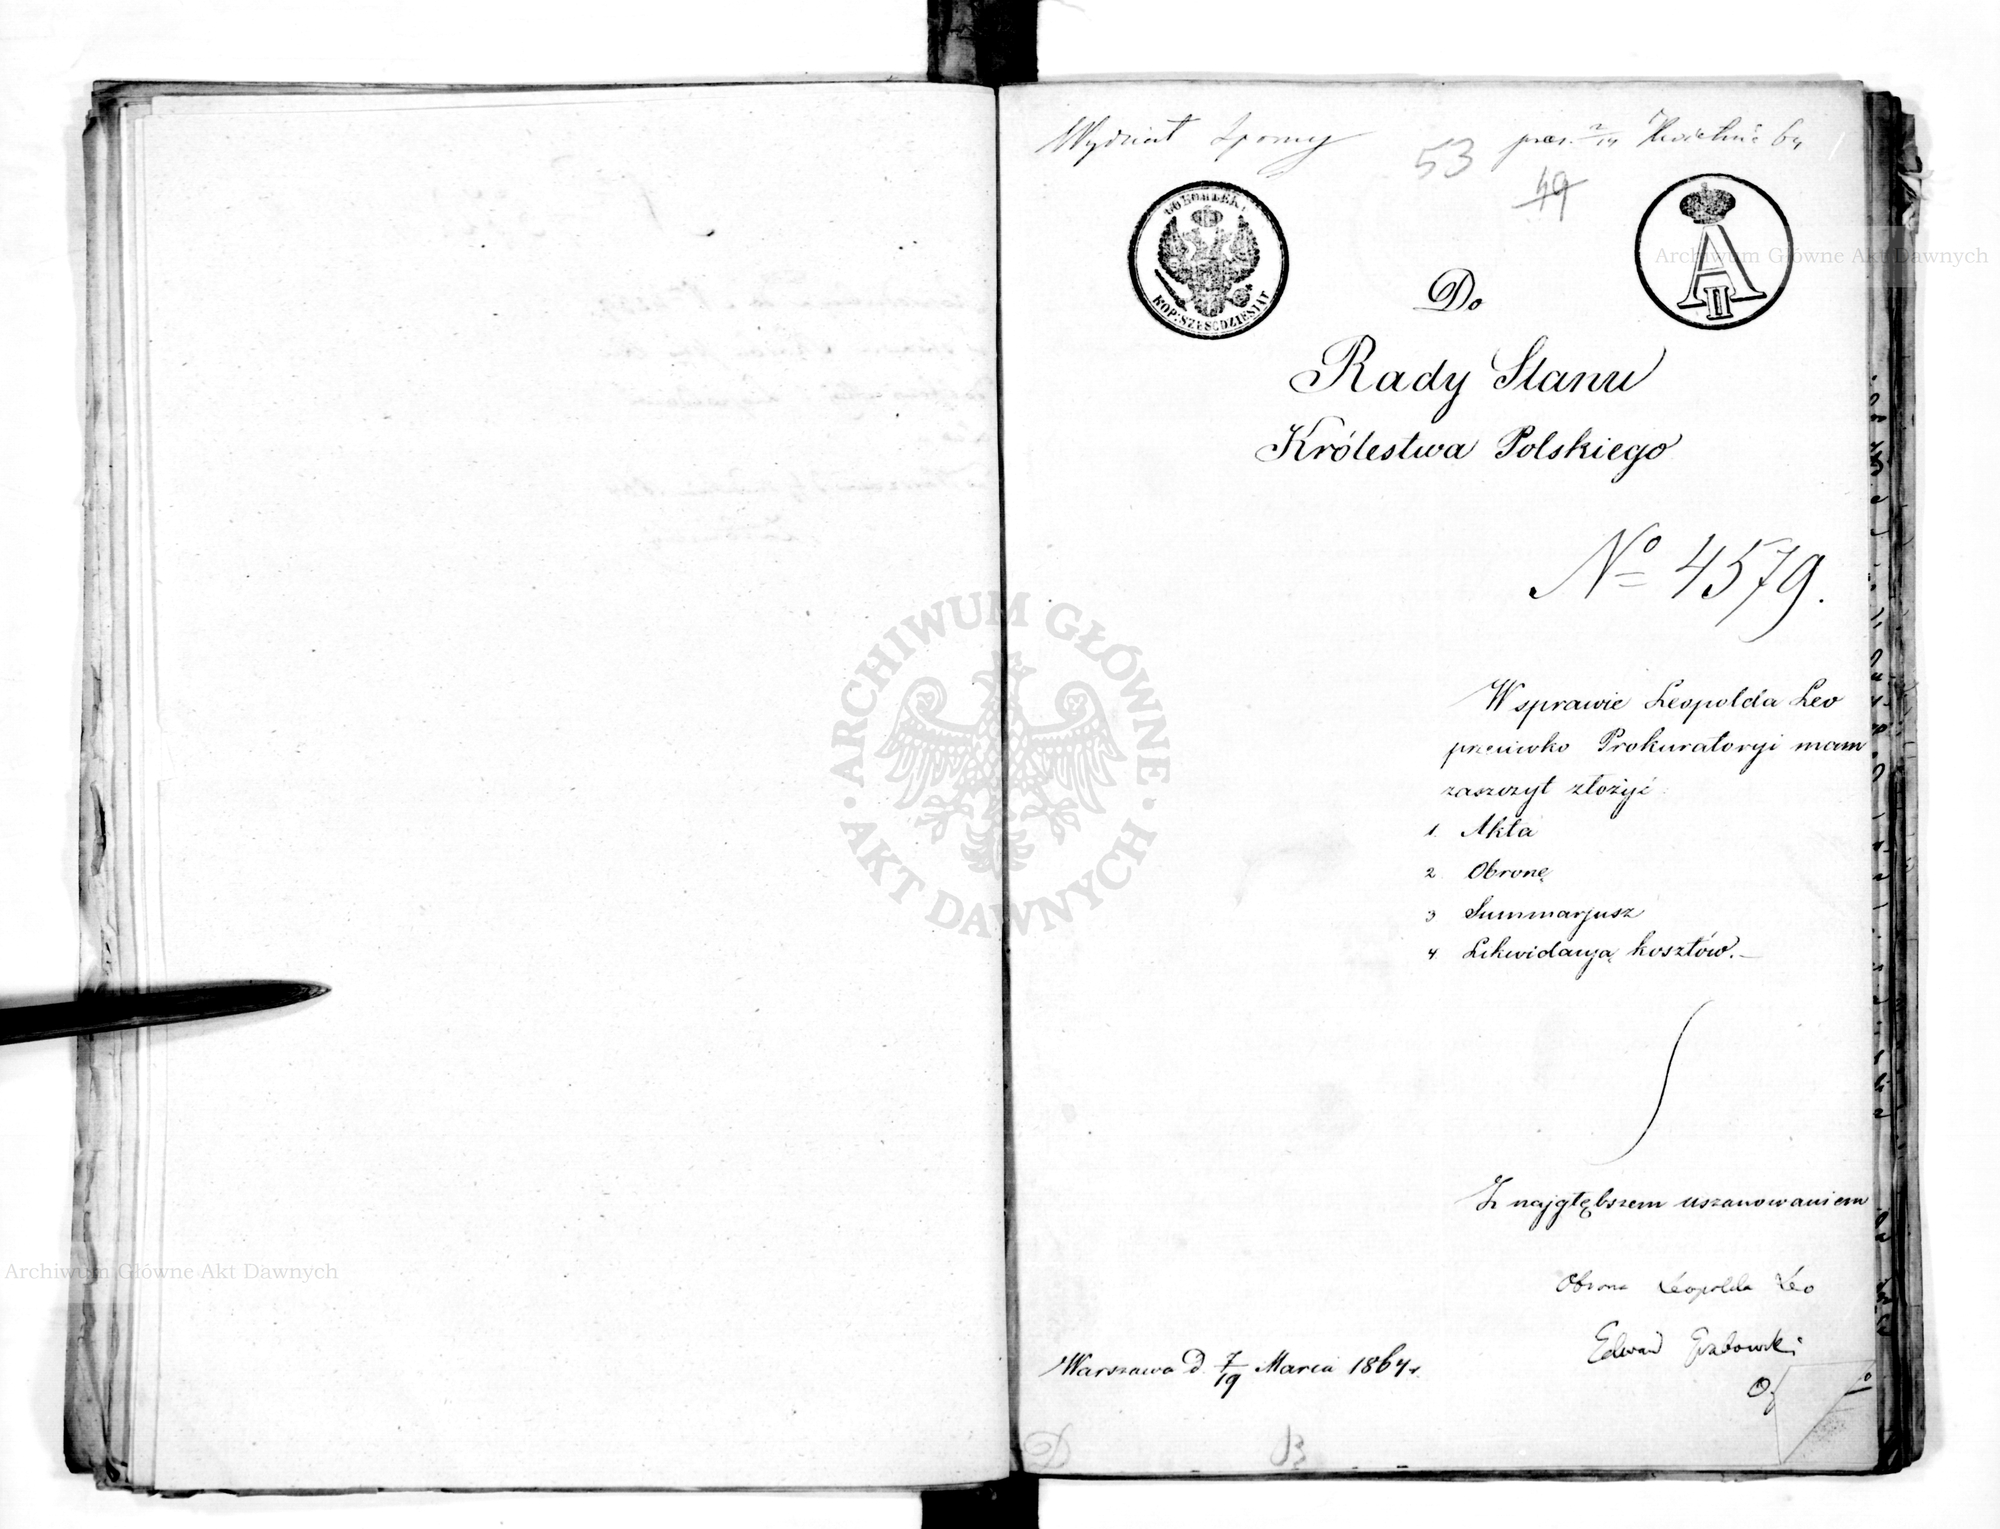 Wydział Sporny
53 pres. 2/14 Kwietnia 64
49
60 KOPIEK.
KOP: SZEŚĆDZIESIĄT
A II
Do
Rady Stanu
Królestwa Polskiego
No 4579.
W sprawie Leopolda Leo
przeciwko Prokuratoryi mam
zaszczyt złożyć:
1. Akta
2. Obronę
3 Summarjusz
4. Likwidacyą kosztów. —
Z najgłębszem uszanowaniem
Obrona Leopolda Leo
Edward Grabowski
Warszawa d. 7/19 Marca 1864 r.
ARCHIWUM GŁÓWNE
AKT DAWNYCH
Archiwum Główne Akt Dawnych
Archiwum Główne Akt Dawnych